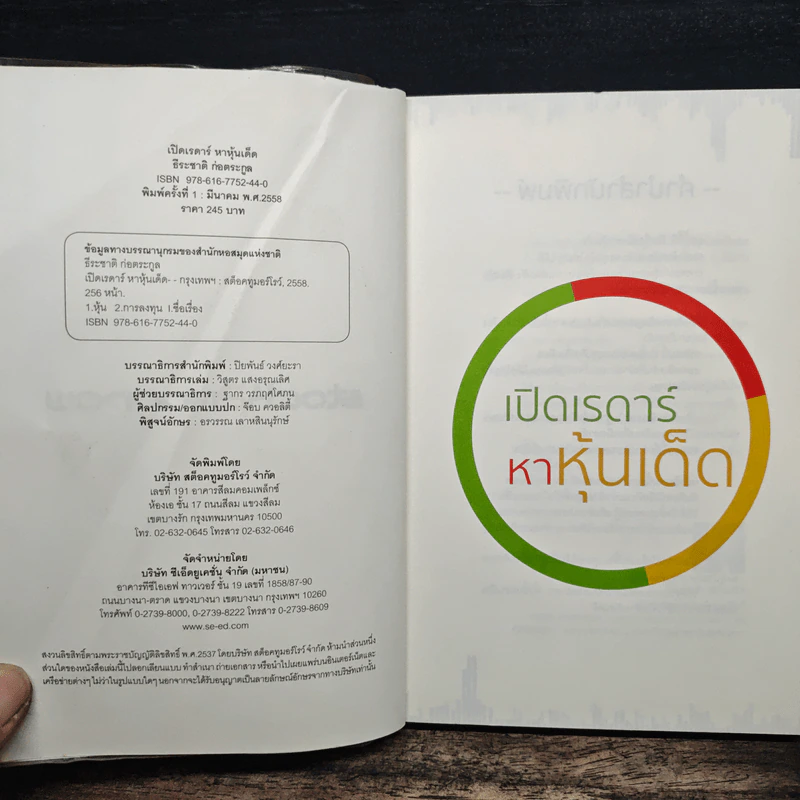 เปิดเรดาร์ หาหุ้นเด็ด
ธีระชาติ ก่อตระกูล
ISBN 978-616-7752-44-0
พิมพ์ครั้งที่ 1 : มีนาคม พ.ศ.2558
ราคา 245 บาท
ข้อมูลทางบรรณานุกรมของสำนักหอสมุดแห่งชาติ
ธีระชาติ ก่อตระกูล
เปิดเรดาร์ หาหุ้นเด็ด- - กรุงเทพฯ : สต็อคทูมอร์โรว์, 2558.
256 หน้า.
1.หุ้น 2.การลงทุน I.ชื่อเรื่อง
ISBN 978-616-7752-44-0
บรรณาธิการสำนักพิมพ์ : ปิยพันธ์ วงศ์ยะรา
บรรณาธิการเล่ม : วิสูตร แสงอรุณเลิศ
ผู้ช่วยบรรณาธิการ : ฐากร วรกฤศโศภน
ศิลปกรรม/ออกแบบปก : จ๊อบ ควอลิตี้
พิสูจน์อักษร : อรวรรณ เลาหสินนุรักษ์
จัดพิมพ์โดย
บริษัท สต็อคทูมอร์โรว์ จำกัด
เลขที่ 191 อาคารสีลมคอมเพล็กซ์
ห้องเอ ชั้น 17 ถนนสีลม แขวงสีลม
เขตบางรัก กรุงเทพมหานคร 10500
โทร. 02-632-0645 โทรสาร 02-632-0646
จัดจำหน่ายโดย
บริษัท ซีเอ็ดยูเคชั่น จำกัด (มหาชน)
อาคารทีซีไอเอฟ ทาวเวอร์ ชั้น 19 เลขที่ 1858/87-90
ถนนบางนา-ตราด แขวงบางนา เขตบางนา กรุงเทพฯ 10260
โทรศัพท์ 0-2739-8000, 0-2739-8222 โทรสาร 0-2739-8609
www.se-ed.com
สงวนลิขสิทธิ์ตามพระราชบัญญัติลิขสิทธิ์ พ.ศ.2537 โดยบริษัท สต็อคทูมอร์โรว์ จำกัด ห้ามนำส่วนหนึ่ง
ส่วนใดของหนังสือเล่มนี้ไปลอกเลียนแบบ ทำสำเนา ถ่ายเอกสาร หรือนำไปเผยแพร่บนอินเตอร์เน็ตและ
เครือข่ายต่างๆ ไม่ว่าในรูปแบบใดๆ นอกจากจะได้รับอนุญาตเป็นลายลักษณ์อักษรจากทางบริษัทเท่านั้น
เปิดเรดาร์
หาหุ้นเด็ด